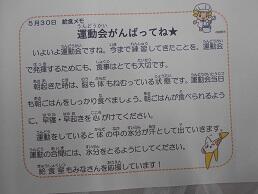 5月30日 給食メモ
運動会がんばってね★
いよいよ運動会ですね。今まで練習してきたことを、運動会
で発揮するためにも、食事はとても大切です。
朝起きた時は、脳も体もねむっている状態です。運動会当日
も朝ごはんをしっかり食べましょう。朝ごはんが食べられるよう
に、早寝・早起きを心がけてください。
運動をしていると体の中の水分が汗として出ていきます。
運動の合間には、水分をとるようにしてください。
給食室もみなさんを応援しています!